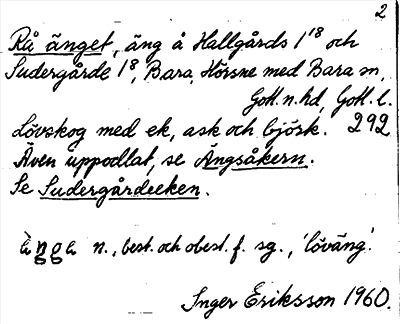 2
Rå änget, äng å Hallgårds 1¹⁸ och
Sudergårde 1⁸, Bara, Hörsne med Bara sn,
Gotl. n. hd, Gotl. l.
Lövskog med ek, ask och björk. 292
Även uppodlat, se Ängsåkern.
Se Sudergårdeeken.
änge n., best. och obest. f. sg., 'löväng'.
Inger Eriksson 1960.